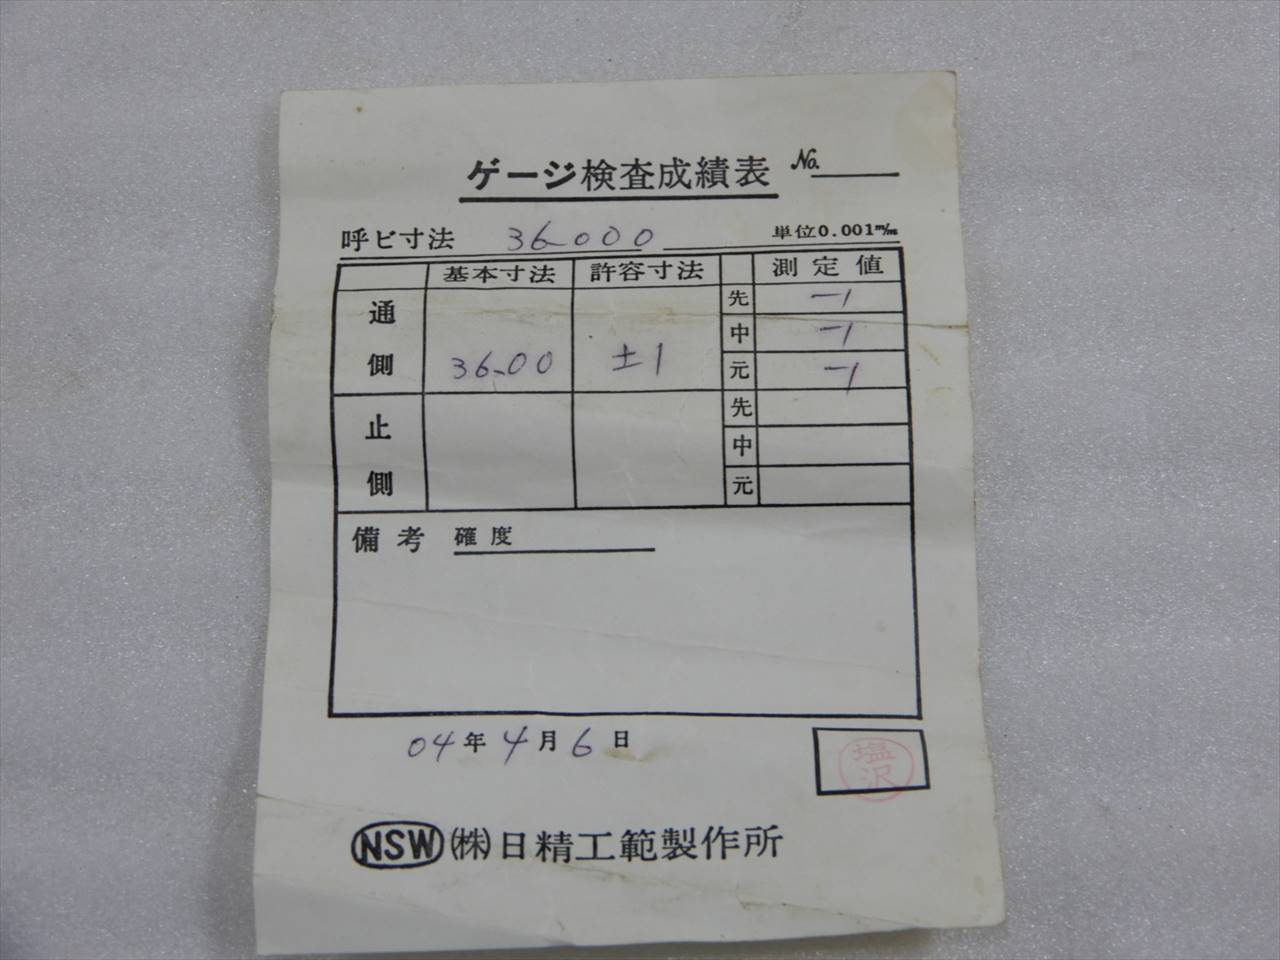 ゲージ検査成績表 No.
呼ビ寸法 36.000 単位0.001m/m
基本寸法 許容寸法 測定値
通側 36.00 ±1
先 -1
中 -1
元 -1
止側
先
中
元
備考 確度
04年4月6日
塩沢
NSW (株)日精工範製作所